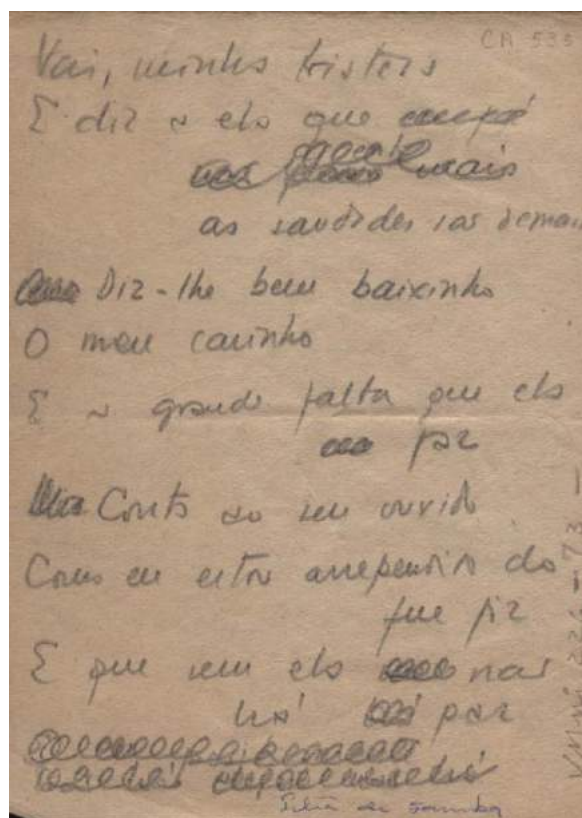 CM 535
Vai, minha tristeza
E diz a ela que
mais
as saudades são demais
Diz-lhe bem baixinho
O meu carinho
E a grande falta que ela
faz
Conta ao seu ouvido
Como eu estou arrependido do
que fiz
E que sem ela não
há paz